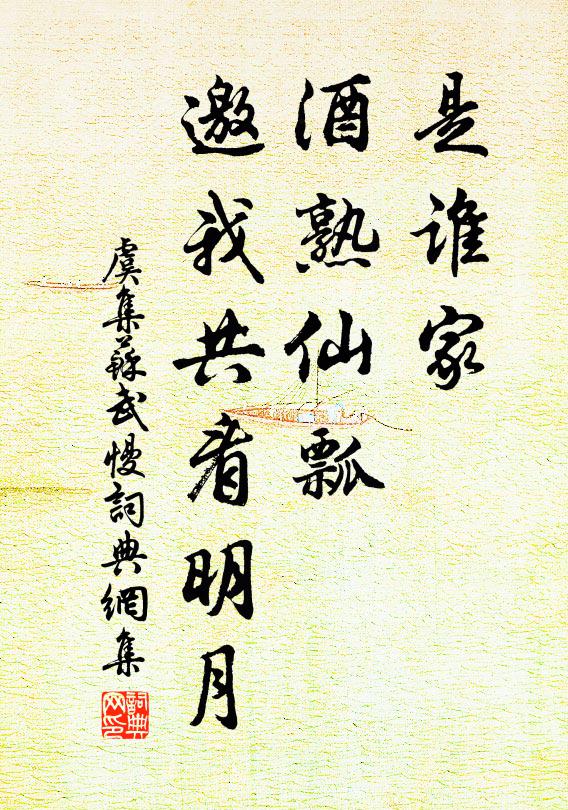 是谁家
酒熟仙瓢
邀我共看明月
虞集蘇武慢詞典網集
詞典
网印